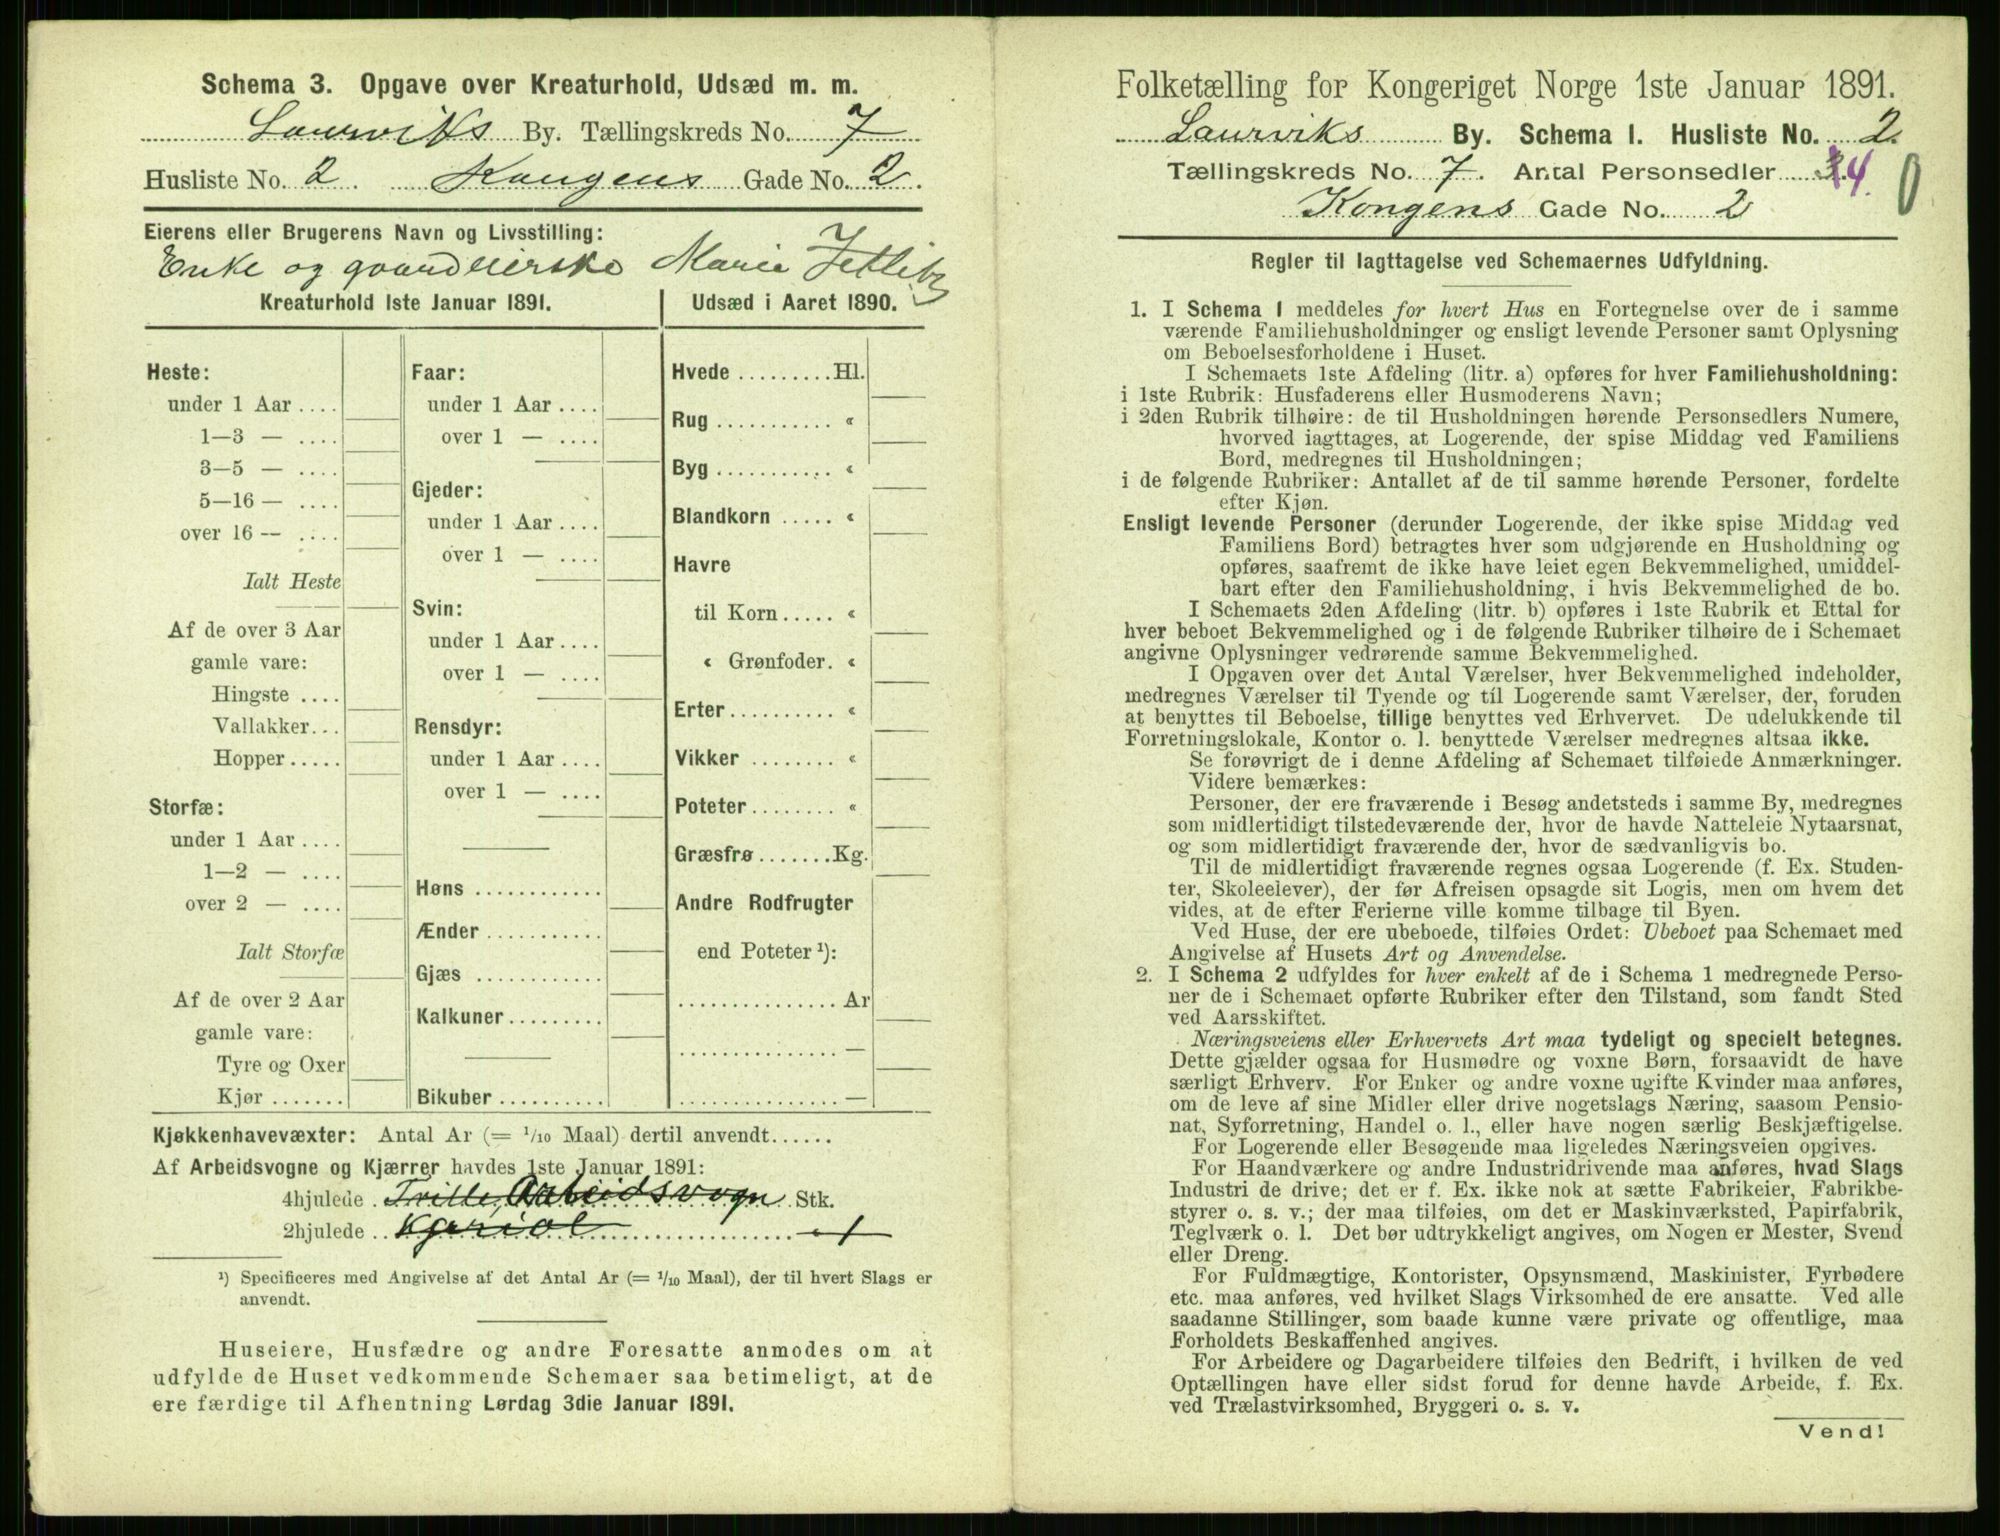 Schema 3. Opgave over Kreaturhold, Udsæd m. m.
Laurviks By. Tællingskreds No. 7
Husliste No. 2. Kongens Gade No. 2.
Eierens eller Brugerens Navn og Livsstilling:
Enke og gaardeierske Marie
Kreaturhold 1ste Januar 1891.
Heste:
under 1 Aar ....
1—3 — ....
3—5 — ....
5—16 — ....
over 16 — ....
Ialt Heste
Af de over 3 Aar
gamle vare:
Hingste ....
Vallakker...
Hopper.....
Storfæ:
under 1 Aar ....
1—2 — ....
over 2 — ....
Ialt Storfæ
Af de over 2 Aar
gamle vare:
Tyre og Oxer
Kjør .......
Faar:
under 1 Aar ....
over 1 — ....
Gjeder:
under 1 Aar ....
over 1 — ....
Svin:
under 1 Aar ....
over 1 — ....
Rensdyr:
under 1 Aar ....
over 1 — ....
Høns ............
Ænder ...........
Gjæs ............
Kalkuner.........
Bikuber ..........
Udsæd i Aaret 1890.
Hvede .........Hl.
Rug ........... «
Byg ........... «
Blandkorn ..... «
Havre
til Korn..... «
« Grønfoder. «
Erter.......... «
Vikker ........ «
Poteter........ «
Græsfrø.......Kg.
Andre Rodfrugter
end Poteter ¹):
............... Ar
............... —
............... —
Kjøkkenhavevæxter: Antal Ar (= 1/10 Maal) dertil anvendt......
Af Arbeidsvogne og Kjærrer havdes 1ste Januar 1891:
4hjulede . Trille, Arbeidsvogn Stk.
2hjulede .. Kjariol — 1
¹) Specificeres med Angivelse af det Antal Ar (= 1/10 Maal), der til hvert Slags er
anvendt.
Huseiere, Husfædre og andre Foresatte anmodes om at
udfylde de Huset vedkommende Schemaer saa betimeligt, at de
ere færdige til Afhentning Lørdag 3die Januar 1891.
Folketælling for Kongeriget Norge 1ste Januar 1891.
Laurviks By. Schema 1. Husliste No. 2.
Tællingskreds No. 7. Antal Personsedler 4. 0
Kongens Gade No. 2
Regler til Iagttagelse ved Schemaernes Udfyldning.
1. I Schema 1 meddeles for hvert Hus en Fortegnelse over de i samme
værende Familiehusholdninger og ensligt levende Personer samt Oplysning
om Beboelsesforholdene i Huset.
I Schemaets 1ste Afdeling (litr. a) opføres for hver Familiehusholdning:
i 1ste Rubrik: Husfaderens eller Husmoderens Navn;
i 2den Rubrik tilhøire: de til Husholdningen hørende Personsedlers Numere,
hvorved iagttages, at Logerende, der spise Middag ved Familiens
Bord, medregnes til Husholdningen;
i de følgende Rubriker: Antallet af de til samme hørende Personer, fordelte
efter Kjøn.
Ensligt levende Personer (derunder Logerende, der ikke spise Middag ved
Familiens Bord) betragtes hver som udgjørende en Husholdning og
opføres, saafremt de ikke have leiet egen Bekvemmelighed, umiddel-
bart efter den Familiehusholdning, i hvis Bekvemmelighed de bo.
I Schemaets 2den Afdeling (litr. b) opføres i 1ste Rubrik et Ettal for
hver beboet Bekvemmelighed og i de følgende Rubriker tilhøire de i Schemaet
angivne Oplysninger vedrørende samme Bekvemmelighed.
I Opgaven over det Antal Værelser, hver Bekvemmelighed indeholder,
medregnes Værelser til Tyende og til Logerende samt Værelser, der, foruden
at benyttes til Beboelse, tillige benyttes ved Erhvervet. De udelukkende til
Forretningslokale, Kontor o. l. benyttede Værelser medregnes altsaa ikke.
Se forøvrigt de i denne Afdeling af Schemaet tilføiede Anmærkninger.
Videre bemærkes:
Personer, der ere fraværende i Besøg andetsteds i samme By, medregnes
som midlertidigt tilstedeværende der, hvor de havde Natteleie Nytaarsnat,
og som midlertidigt fraværende der, hvor de sædvanligvis bo.
Til de midlertidigt fraværende regnes ogsaa Logerende (f. Ex. Studen-
ter, Skoleelever), der før Afreisen opsagde sit Logis, men om hvem det
vides, at de efter Ferierne ville komme tilbage til Byen.
Ved Huse, der ere ubeboede, tilføies Ordet: Ubeboet paa Schemaet med
Angivelse af Husets Art og Anvendelse.
2. I Schema 2 udfyldes for hver enkelt af de i Schema 1 medregnede Perso-
ner de i Schemaet opførte Rubriker efter den Tilstand, som fandt Sted
ved Aarsskiftet.
Næringsveiens eller Erhvervets Art maa tydeligt og specielt betegnes.
Dette gjælder ogsaa for Husmødre og voxne Børn, forsaavidt de have
særligt Erhverv. For Enker og andre voxne ugifte Kvinder maa anføres,
om de leve af sine Midler eller drive nogetslags Næring, saasom Pensio-
nat, Syforretning, Handel o. l., eller have nogen særlig Beskjæftigelse.
For Logerende eller Besøgende maa ligeledes Næringsveien opgives.
For Haandværkere og andre Industridrivende maa anføres, hvad Slags
Industri de drive; det er f. Ex. ikke nok at sætte Fabrikeier, Fabrikbe-
styrer o. s. v.; der maa tilføies, om det er Maskinværksted, Papirfabrik,
Teglværk o. l. Det bør udtrykkeligt angives, om Nogen er Mester, Svend
eller Dreng.
For Fuldmægtige, Kontorister, Opsynsmænd, Maskinister, Fyrbødere
etc. maa anføres, ved hvilket Slags Virksomhed de ere ansatte. Ved alle
saadanne Stillinger, som baade kunne være private og offentlige, maa
Forholdets Beskaffenhed angives.
For Arbeidere og Dagarbeidere tilføies den Bedrift, i hvilken de ved
Optællingen have eller sidst forud for denne havde Arbeide, f. Ex.
ved Trælastvirksomhed, Bryggeri o. s. v.
Vend!